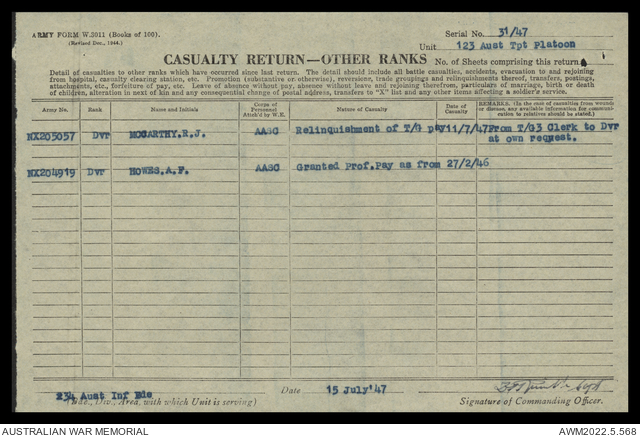 ARMY FORM W.3011 (Books of 100).
(Revised Dec., 1944.)
Serial No. 31/47
Unit 123 Aust Tpt Platoon
CASUALTY RETURN—OTHER RANKS
No. of Sheets comprising this return
Detail of casualties to other ranks which have occurred since last return. The detail should include all battle casualties, accidents, evacuation to and rejoining
from hospital, casualty clearing station, etc. Promotion (substantive or otherwise), reversions, trade groupings and relinquishments thereof, transfers, postings,
attachments, etc., forfeiture of pay, etc. Leave of absence without pay, absence without leave and rejoining therefrom, particulars of marriage, birth or death
of children, alteration in next of kin and any consequential change of postal address, transfers to "X" list and any other items affecting a soldier's service.
Army No. Rank Name and Initials Corps of Personnel Attch'd by W.E. Nature of Casualty Date of Casualty REMARKS. (In the case of casualties from wounds or disease, any available information for communication to relatives should be stated.)
NX205057 Dvr MCCARTHY.R.J. AASC Relinquishment of T/G pay 11/7/47 From T/G3 Clerk to Dvr
at own request.
NX204919 Dvr HOWES.A.F. AASC Granted Prof.Pay as from 27/2/46
234 Aust Inf Bde
(Bde., Div., Area, with which Unit is serving)
Date 15 July'47
Signature of Commanding Officer.
AUSTRALIAN WAR MEMORIAL
AWM2022.5.568